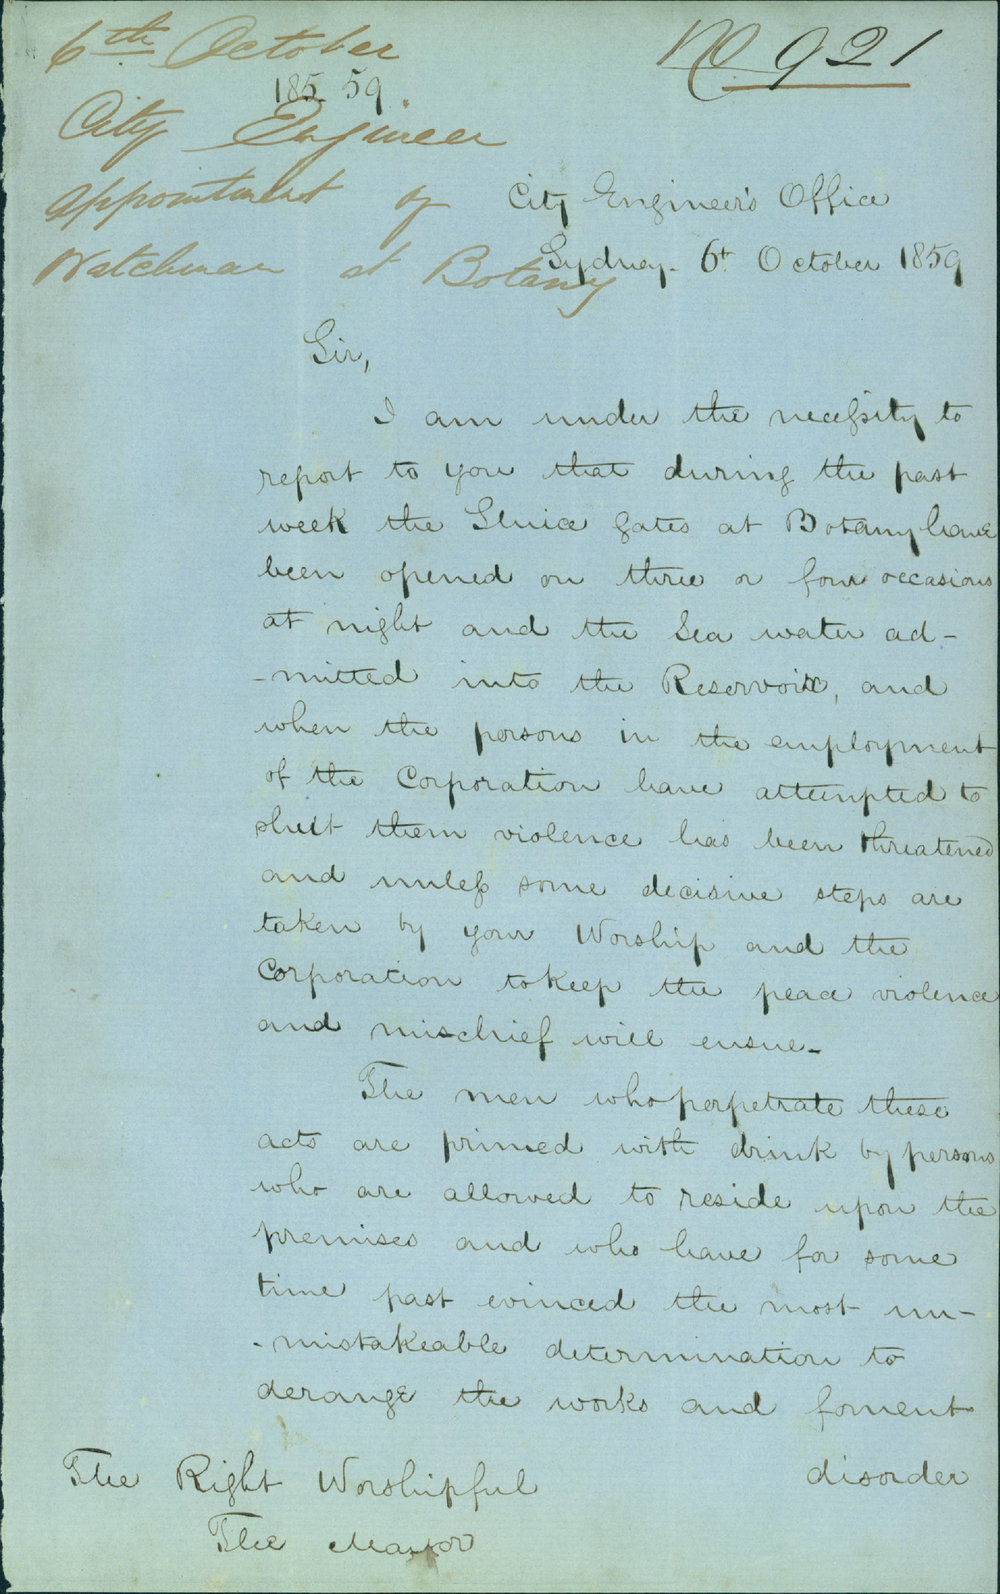 6th October
No 921
185 59
City Engineer
Appointment of
Watchman at Botany
City Engineer's Office
Sydney. 6t October 1859
Sir,
I am under the necessity to
report to you that during the past
week the Sluice Gates at Botany have
been opened on three or four occasions
at night and the Sea water ad-
-mitted into the Reservoir, and
when the persons in the employment
of the Corporation have attempted to
shut them violence has been threatened
and unless some decisive steps are
taken by your Worship and the
Corporation to keep the peace violence
and mischief will ensue.
The men who perpetrate these
acts are primed with drink by persons
who are allowed to reside upon the
premises and who have for some
time past evinced the most un-
-mistakeable determination to
derange the works and foment
disorder
The Right Worshipful
The Mayor